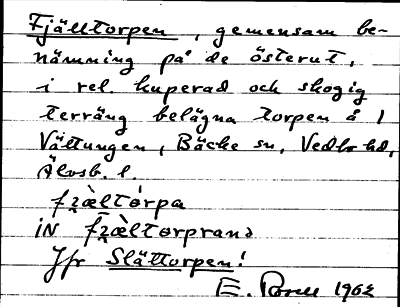 Fjälltorpen, gemensam be-
nämning på de österut,
i rel. kuperad och skogig
terräng belägna torpen å 1
Vättungen, Bäcke sn, Vedbo hd,
Älvsb. l.
iN
Jfr Slättorpen!
E. 1962